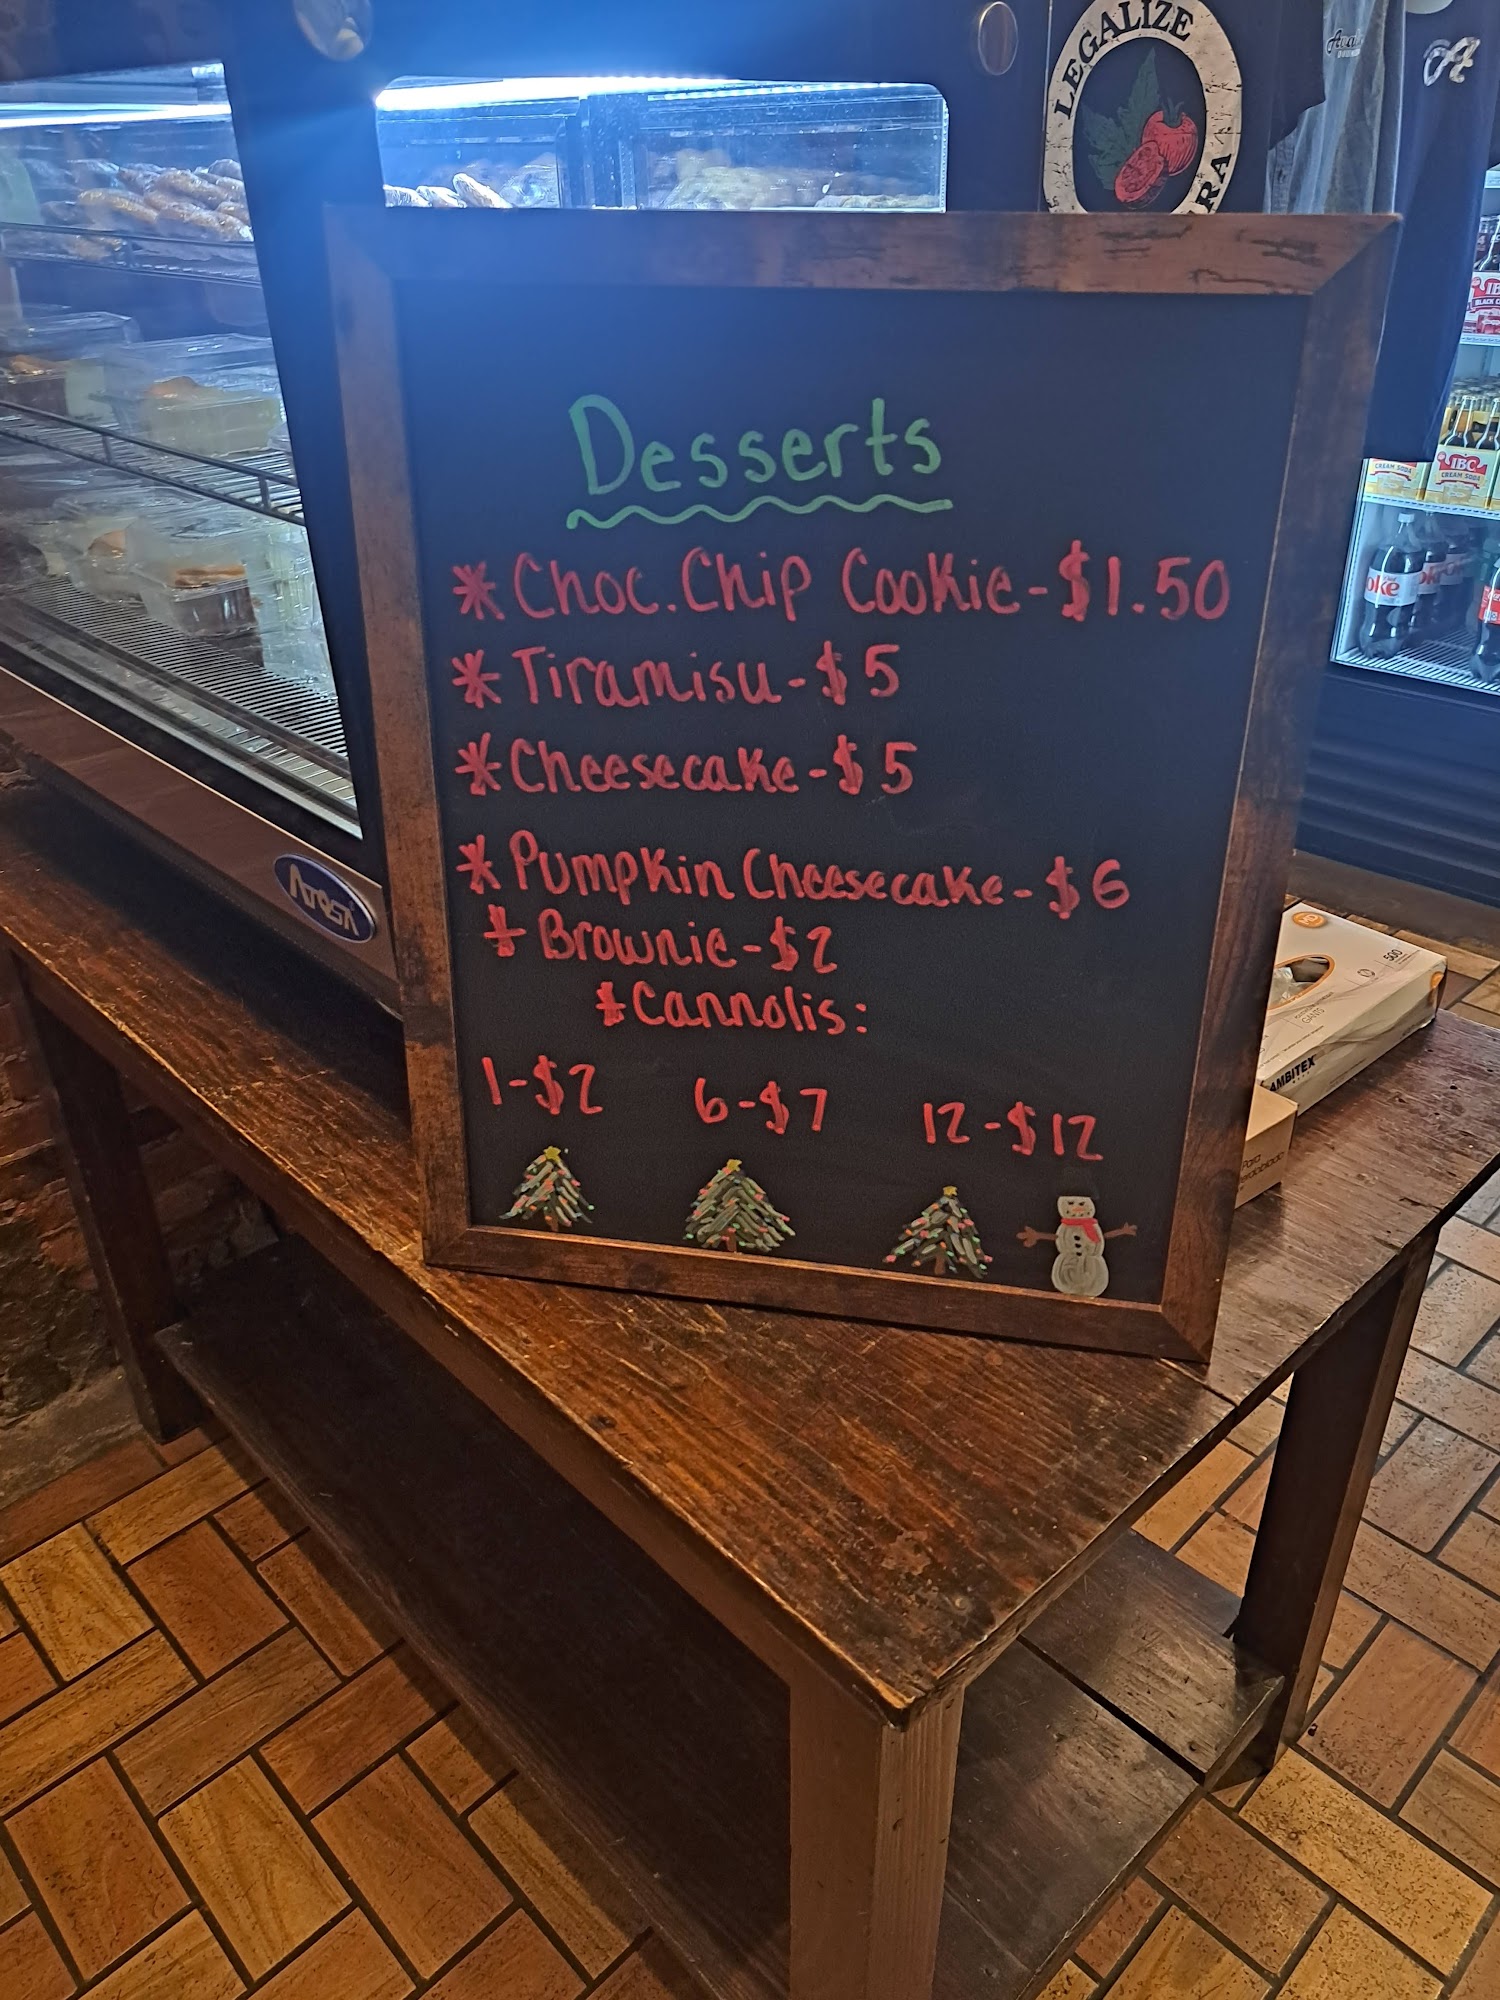 LEGALIZE
Desserts
*Choc. Chip Cookie-$1.50
*Tiramisu-$5
*Cheesecake-$5
*Pumpkin Cheesecake-$6
*Brownie-$2
*Cannolis:
1-$2 6-$7 12-$12
Atosa
IBC
CREAM SODA
IBC
CREAM SODA
Diet
oke
500
GANTS
AMBITEX
Para